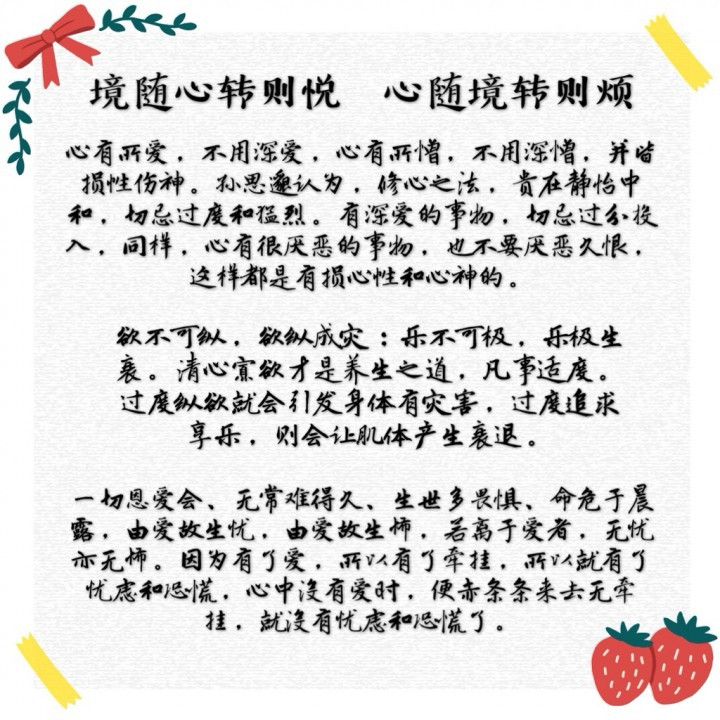 境随心转则悦　心随境转则烦
心有所爱，不用深爱，心有所憎，不用深憎，并皆
损性伤神。孙思邈认为，修心之法，贵在静怡中
和，切忌过度和猛烈。有深爱的事物，切忌过分投
入，同样，心有很厌恶的事物，也不要厌恶久恨，
这样都是有损心性和心神的。
欲不可纵，欲纵成灾：乐不可极，乐极生
衰。清心寡欲才是养生之道，凡事适度。
过度纵欲就会引发身体有灾害，过度追求
享乐，则会让肌体产生衰退。
一切恩爱会、无常难得久、生世多畏惧、命危于晨
露，由爱故生忧，由爱故生怖，若离于爱者，无忧
亦无怖。因为有了爱，所以有了牵挂，所以就有了
忧虑和恐慌，心中没有爱时，便赤条条来去无牵
挂，就没有忧虑和恐慌了。